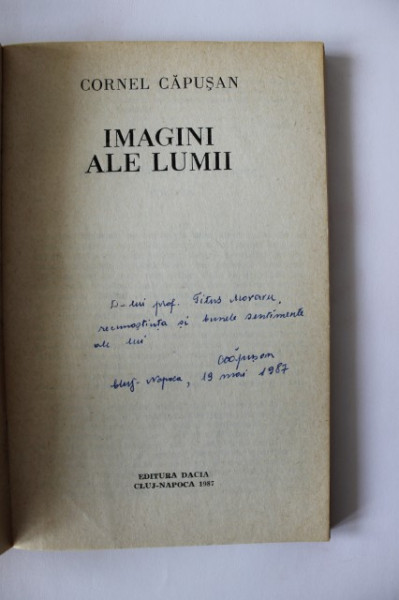 CORNEL CĂPUŞAN
IMAGINI
ALE LUMII
D-lui prof. Titus Moraru,
recunoştinţa şi bunele sentimente
ale lui
Căpuşan
Cluj-Napoca, 19 mai 1987
EDITURA DACIA
CLUJ-NAPOCA 1987